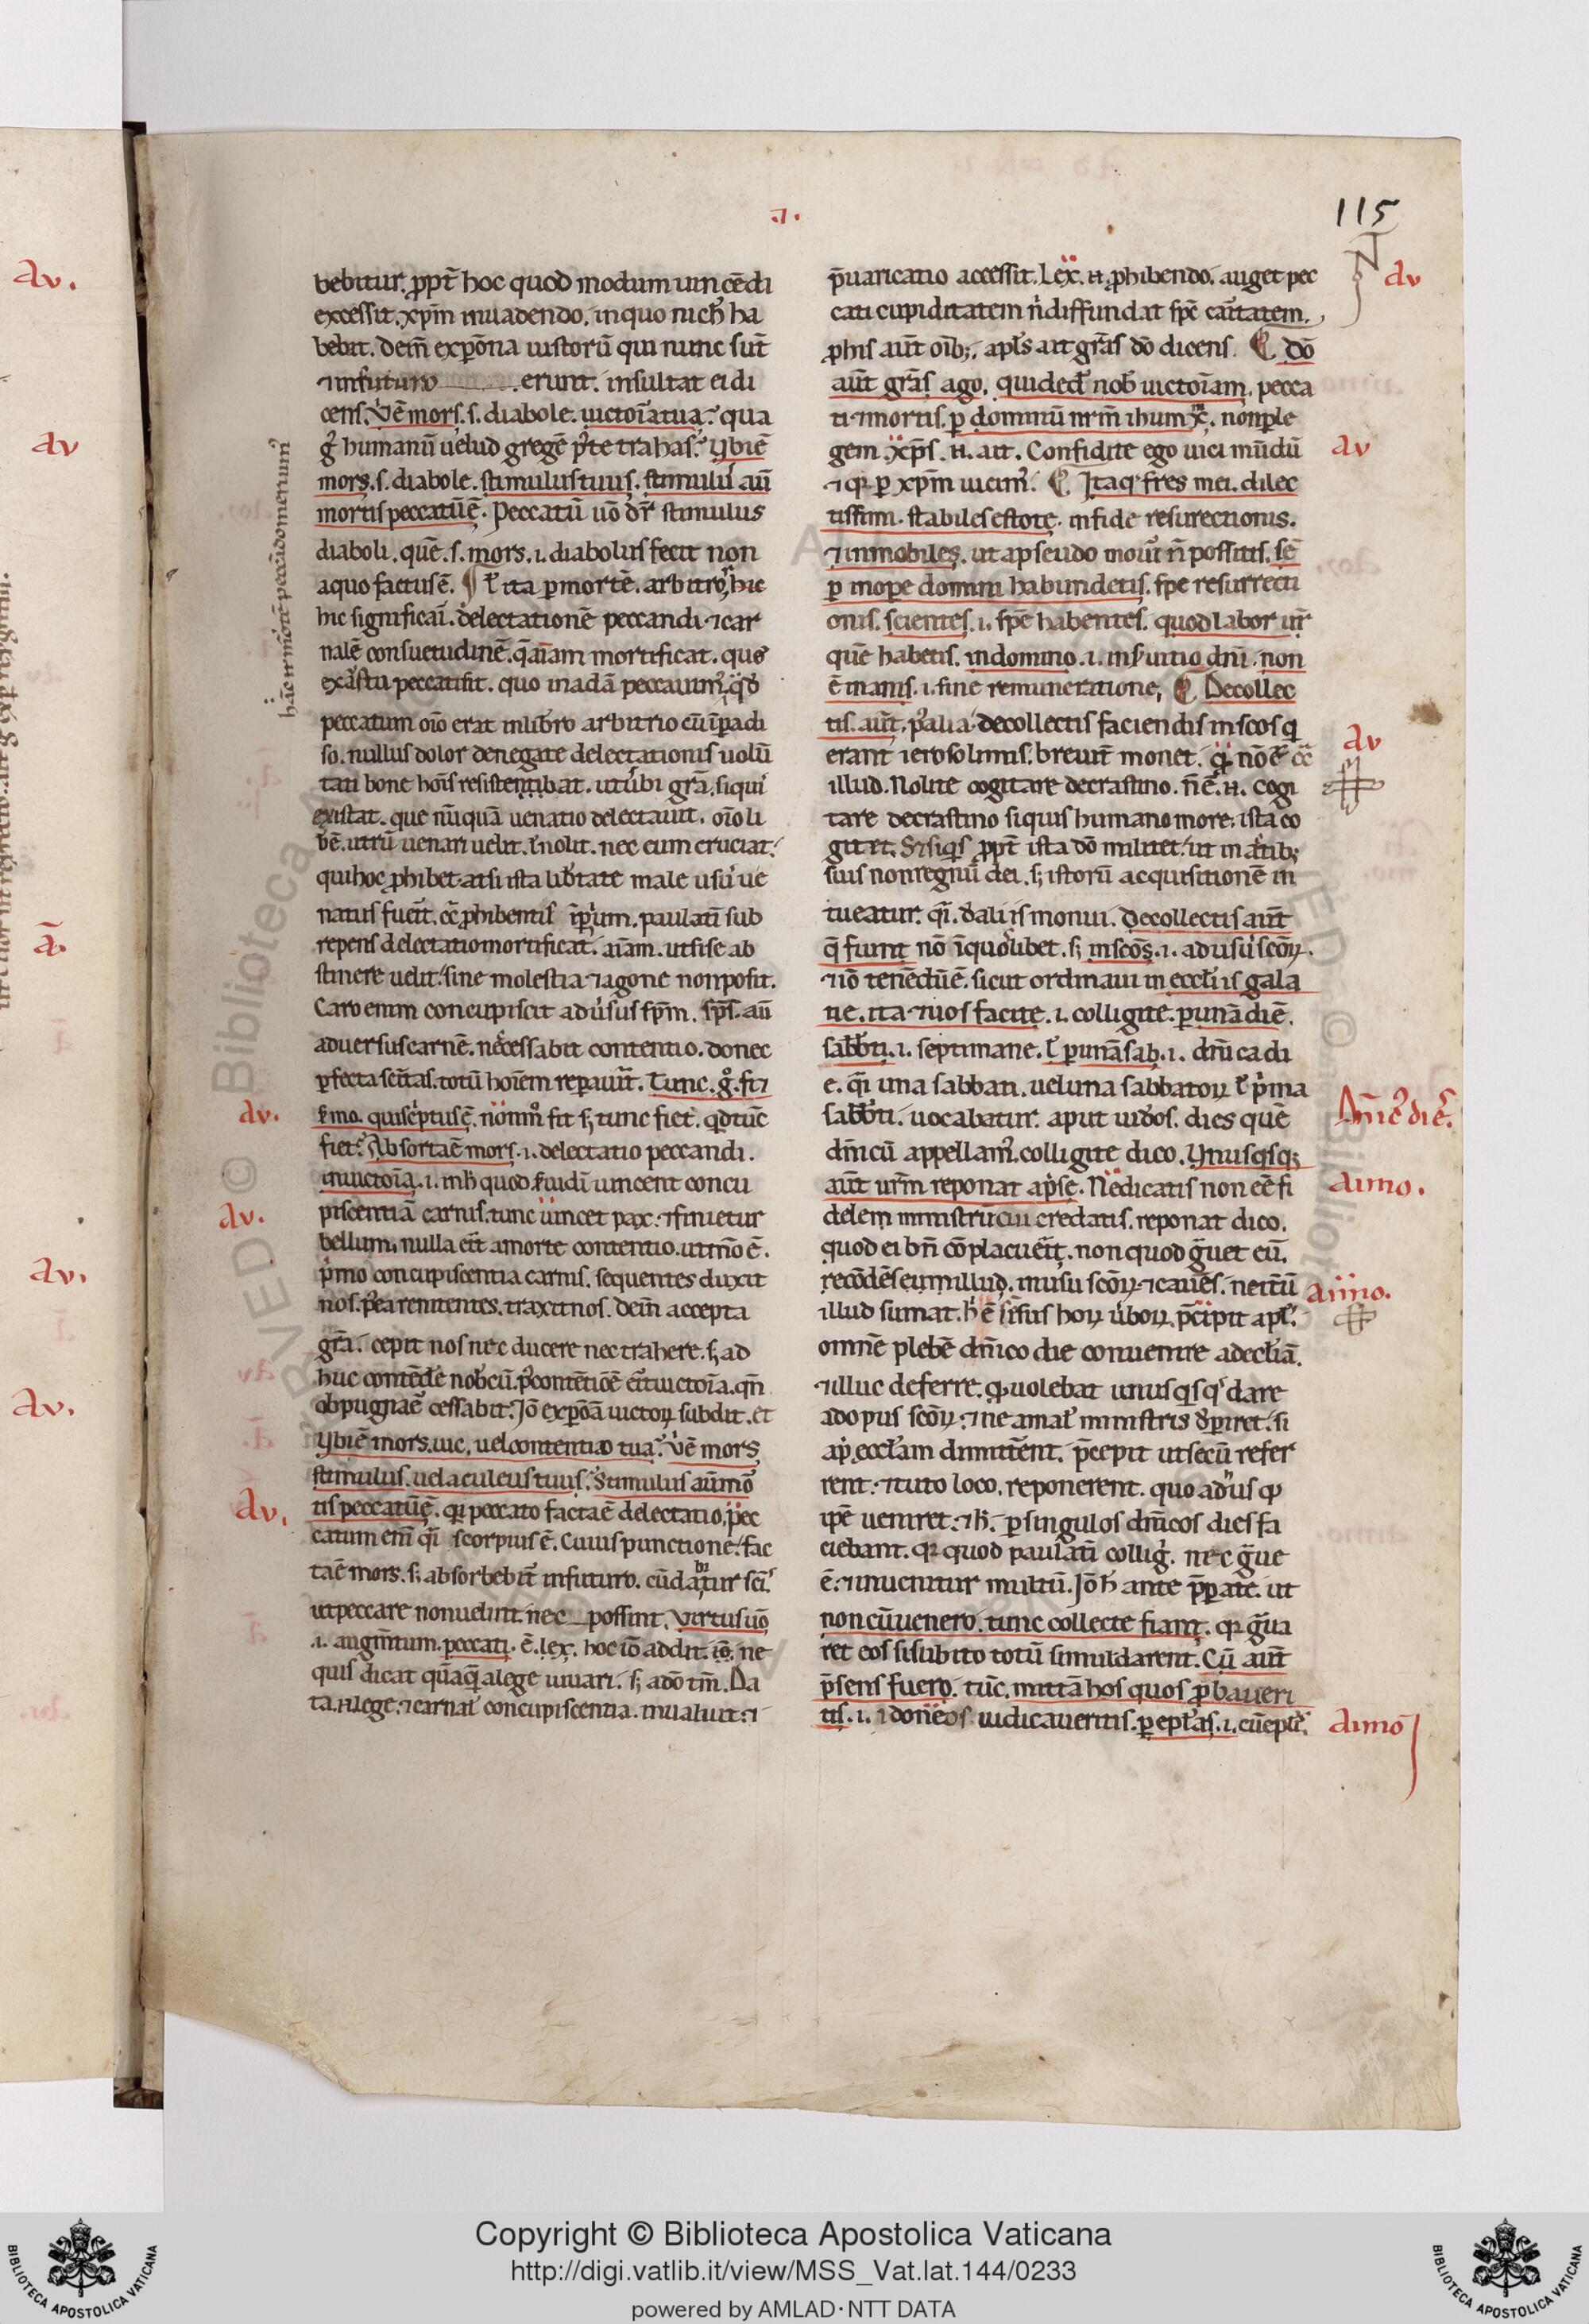 115
.I.
bebitur. ꝓpt̄ hoc quod modum uincēdi
excessit. xp̄m inuadendo. in quo nich̄ ha
bebit. Dein̄ ex ꝑsōna iustorū qui nunc sūt
⁊ in futuro erunt. insultat ei di
cens. Vbi ē mors. s. diabole. uictoīa tua. qua
humanū uelud gregē p̄ te trahas. Vbi ē
mors. s. diabole. stimulus tuus. stimulus aū
mortis peccatū ē. Peccatū uō dr̄ stimulus
diaboli. quē. s. mors. i. diabolus fecit non
a quo factus ē. ł ita ꝑ mortē. arbitror hic
hic significari. delectationē peccandi ⁊ car
nalē consuetudinē. q̄ aīam mortificat. que
ex astu peccati fit. quo in adā peccauim᾽.
peccatum oīo erat in libero arbitrio cū in paradi
so. nullus dolor de negate delectationis uolū
tati bone hoīs resistentibat. ut ubi grā. si qui
existat. que nūquā uenatio delectauit. oīo li
bē. utrū uenari uelit. ł nolit. nec eum cruciat.
qui hoc ꝓhibet. at si ista lib̄tate male usus ue
natus fuerit. ꝓhibentis imperium. paulati sub
repens delectatio mortificat. aīam. ut si se ab
stinere uelit. sine molestia ⁊ agone non posit.
Caro enim concupiscit aduersus sp̄m. sp̄s. aū
aduersus carnē. nec cessabit contentio. donec
ꝑfecta sc̄itas. totū hoīem reparauit. Tunc. g̊. fiet
sermo. qui scriptus ē. non modo fit sed tunc fiet. qd tūc
fiet. Absorta ē mors. i. delectatio peccandi.
in uictoīa. i. in h̄ quod
piscentiā carnis. tunc uincet pax. ⁊ finietur
bellum. nulla erit a morte contentio. ut modo ē.
p̄mo concupiscentia carnis. sequentes duxit
nos. p̄ea renitentes. traxit nos. dein̄ accepta
grā. cepit nos nec ducere nec trahere. sed ad
huc contēdere nobiscū. p̄ contētionē erit uictoīa. qn̄
obpugnaē cessabit. Iō ex ꝑsōa uictoꝝ subdit. et
Vbi ē mors. uic. uel contentio tua. Vbi ē mors
stimulus. uel aculeus tuus. Stimulus aū mor
tis peccatū ē. qr peccato facta ē delectatio. pec
catum eni quasi scorpius ē. Cuius punctione. fac
ta ē mors. sed absorbebit in futuro. cū dabitur sc̄is
ut peccare non uelint. nec possint. Virtus uō
.i. augm̄tum. peccati. ē. lex. hoc iō addit. iō. ne
quis dicat quāquam a lege iuuari. sed a dō tm̄. Da
ta. n. lege. ⁊ carnal̄ concupiscentia. inualuit. ⁊
p̄uaricatio accessit. Lex. n. ꝓhibendo. auget pec
cati cupiditatem n̄ diffundat sp̄c cāritatem.
ꝓ his aūt oīb;. apl̄s ait grās dō dicens. Dō
aūt grās ago. qui dedit nob̄ uictoīam. pecca
ti ⁊ mortis. ꝑ dominū nr̄m ihum xc. non ꝑ le
gem. xp̄s. n. ait. Confidite ego uici mūdū
⁊ qr ꝑ xp̄m uicim᾽. Itaq fres mei. dilec
tissimi. stabiles estote. in fide resurectionis.
⁊ inmobiles. ut a pseudo moueri n̄ possitis. sē
ꝑ in opere domini habundetis. spe resurrecti
onis. scientes. i. spē habentes. quod labor ur̄
quē habetis. in domino. i. in seruitio dn̄i. non
ē inanis. i. sine remuneratione. De collec
tis. aūt. p̄ alia de collectis faciendis in scos q
erant ierosolimis. breuit monet. qr nō ē ꝯ
illud. Nolite cogitare de crastino. n̄ ē. n. cogi
tare de crastino si quis humano more. ista co
gitet. Set si quis ꝓpt̄ ista dō militet. ut in actib;
suis non regnū dei. sed istorū acquisitionē in
tueatur. quasi. d. aliis monui. De collectis aūt
q̄ fiunt nō in quoslibet. sed in scōs. i. ad usus scōꝝ.
⁊ iō tenendū ē. sicut ordinaui in eccl̄iis gala
tie. ita ⁊ uos facite. i. colligite. ꝑ unā diē.
sabbti. i. septimane. ł ꝑ unā sab. i. dn̄ica di
e. quasi una sabbati. uel una sabbatoꝝ ł p̄ma
sabbti. uocabatur. aput iudeos. dies quē
dn̄icū appellam᾽. colligite dico. Vnusqisq;
aūt ur̄m reponat ap̄ se. Ne dicatis non eē fi
delem ministrum cui credatis. reponat dico.
quod ei bn̄ cōplacuerit. non quod grauet eū.
recōdēs eum illud. in usu scōꝝ ⁊ cauēs. ne itū
illud sumat. h̄ ē sēsus hoꝝ uerboꝝ. p̄cipit apl̄᾽.
omnē plebē dn̄ico die conuenire ad ecl̄iā.
⁊ illuc deferre. qd uolebat unusqisq᾽ dare
ad opus scōꝝ. ⁊ ne a mal᾽ ministris deperiret. si
ap̄ eccl̄am dimittent. p̄cepit ut secū refer
rent. ⁊ tuto loco. reponerent. quo adusq
ipē ueniret. ⁊ h̄. ꝑ singulos dn̄icos dies fa
ciebant. qr quod paulati colligitur. nec graue
ē. ⁊ inuenitur multū. Iō h̄ ante p̄parate. ut
non cū uenero. tunc collecte fiant. qr grāua
ret eos si subito totū simul darent. Cū aūt
p̄sens fuero. tūc. mittā hos quos ꝓbaueri
tis. i. idoneos iudicaueritis. ꝑ epl̄as. i. cū epl̄is
av
av
av
Dn̄ic᾽ dies.
aimo.
aimo.
aimō
av.
av.
av.
av.
av
ā.
av.
av.
Copyright © Biblioteca Apostolica Vaticana
http://digi.vatlib.it/view/MSS_Vat.lat.144/0233
powered by AMLAD·NTT DATA
BIBLIOTECA APOSTOLICA VATICANA
BIBLIOTECA APOSTOLICA VATICANA